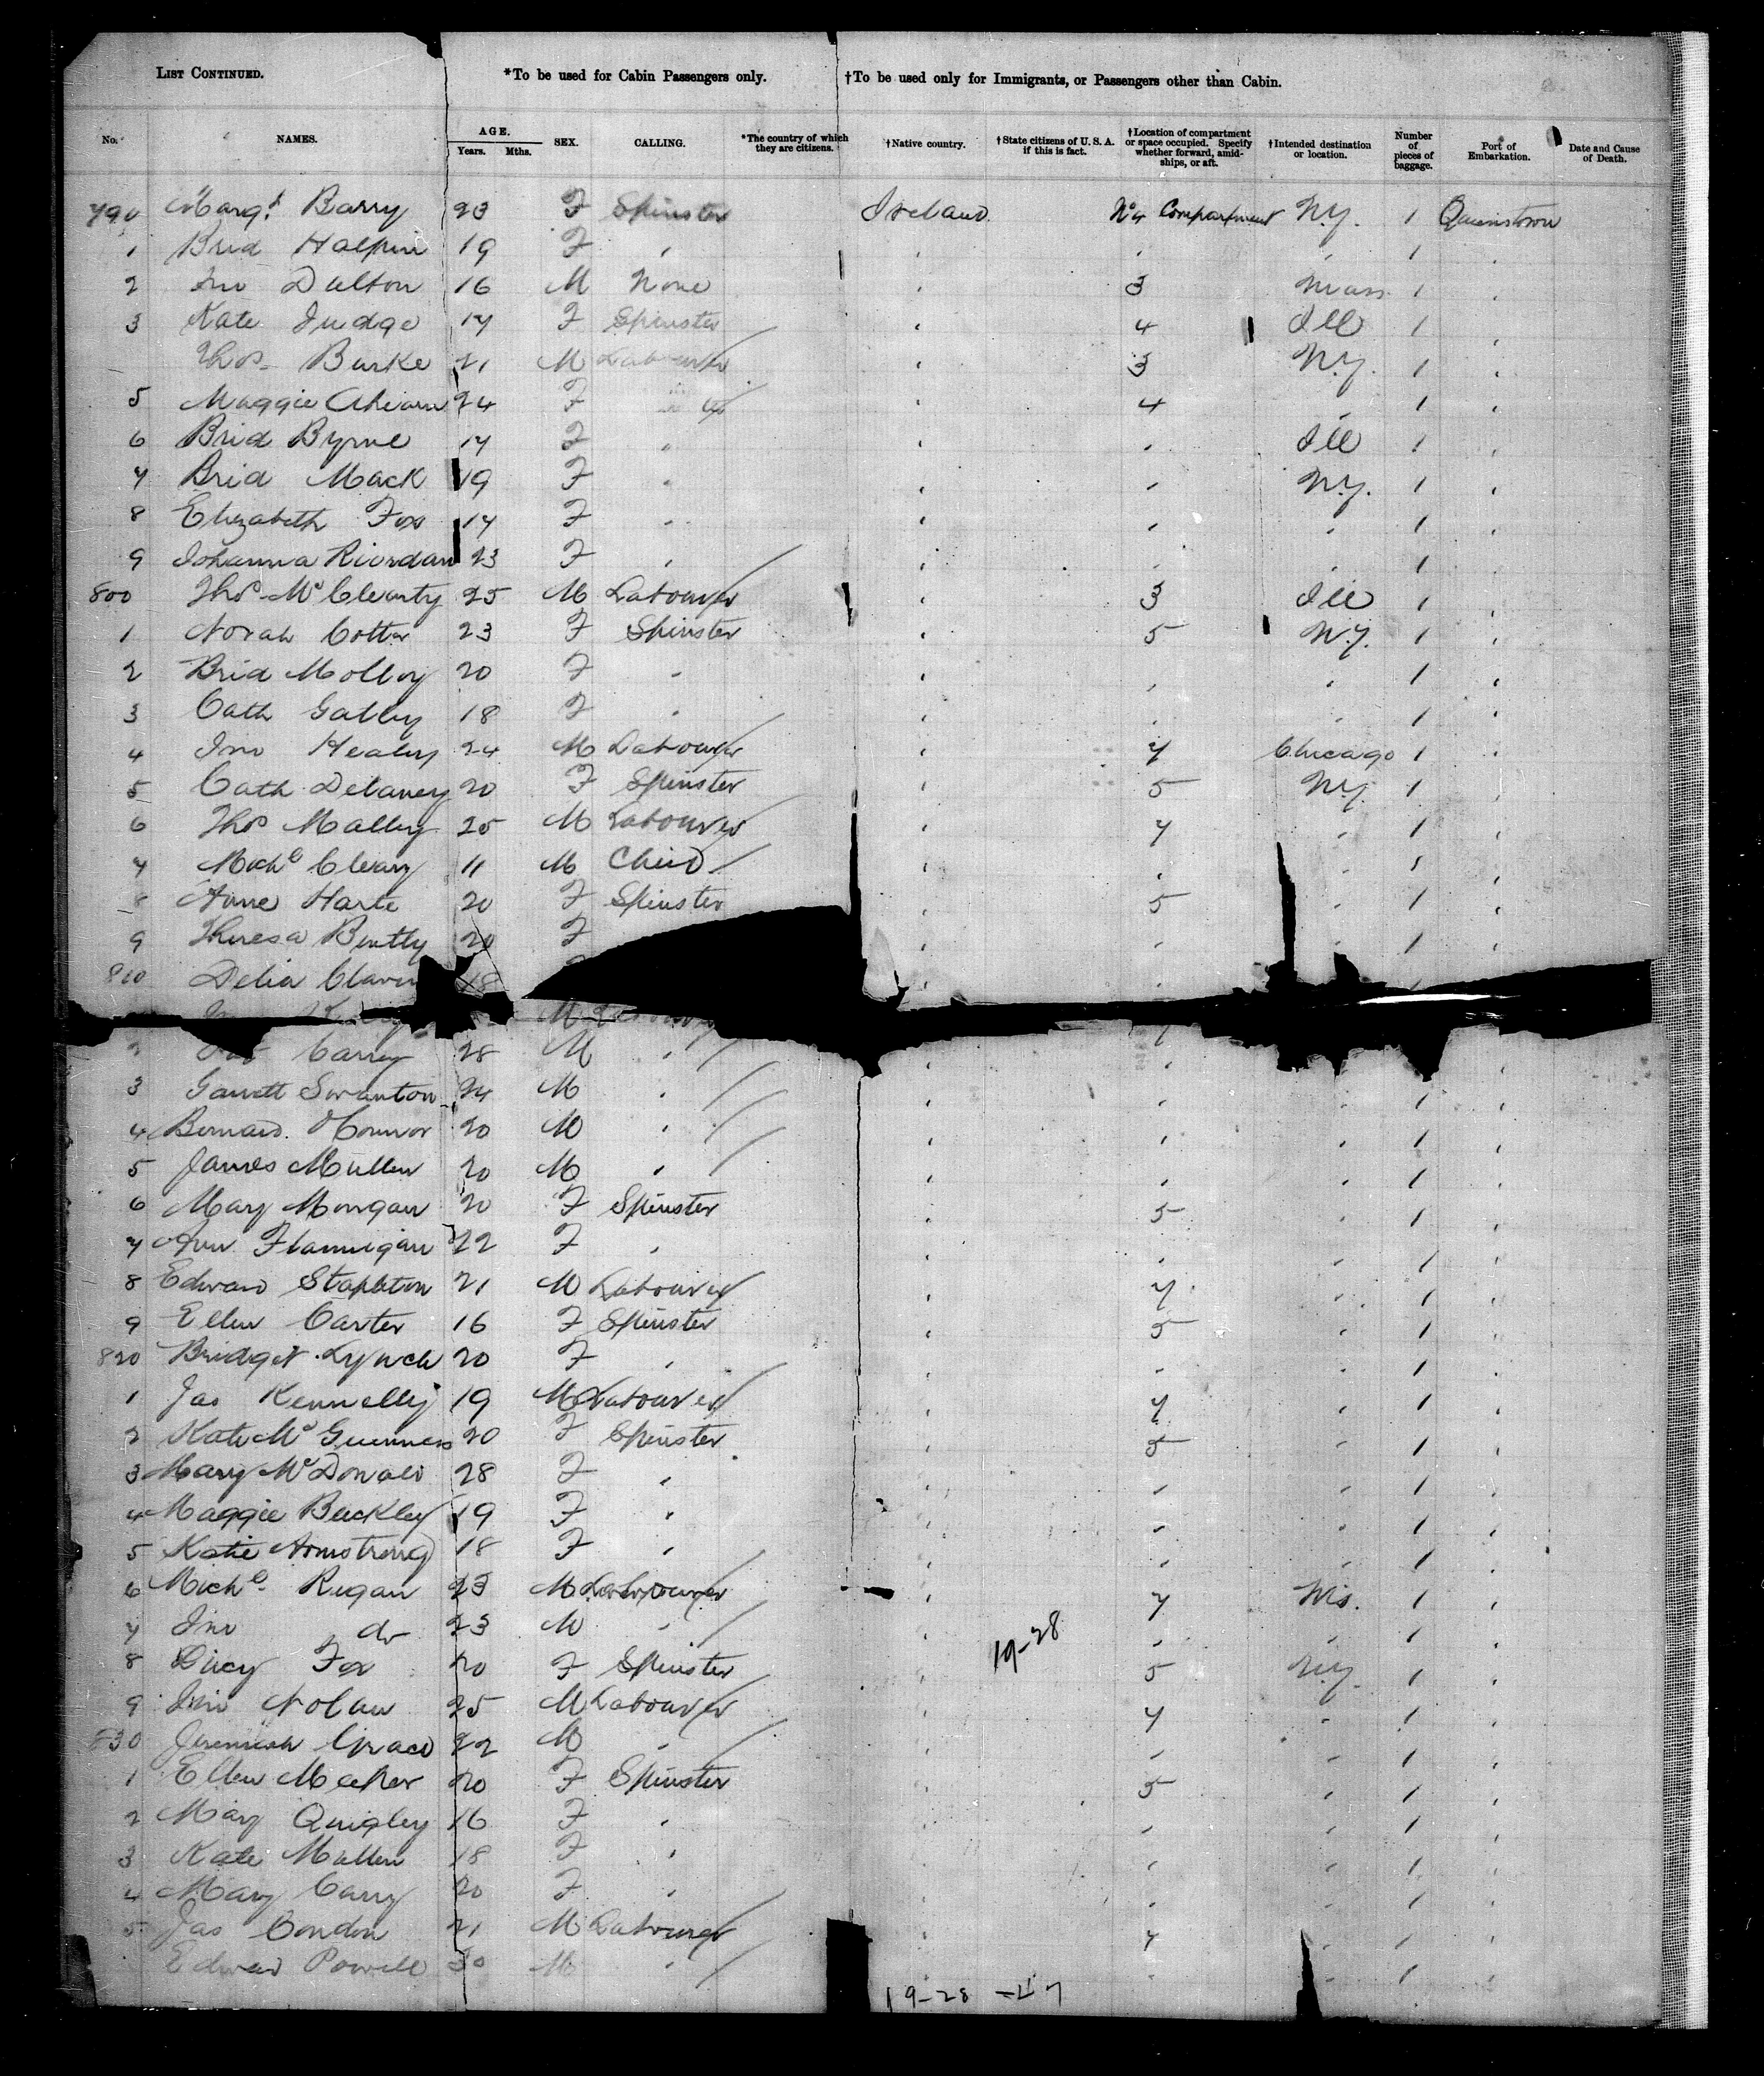 LIST CONTINUED. *To be used for Cabin Passengers only. †To be used only for Immigrants, or Passengers other than Cabin.
No. NAMES. AGE. Years. Mths. SEX. CALLING. *The country of which they are citizens. †Native country. †State citizens of U.S.A. if this is fact. †Location of compartment or space occupied. Specify whether forward, amidships, or aft. †Intended destination or location. Number of pieces of baggage. Port of Embarkation. Date and Cause of Death.
790 Margt Barry 23 F Spinster Ireland No 4 Compartment N.Y. 1 Queenstown
1 Brid Halpin 19 F " " " " 1 "
2 Jno Dalton 16 M None " 3 Mass 1 "
3 Kate Judge 17 F Spinster " 4 Ill 1 "
Thos Burke 21 M Labourer " 3 N.Y. 1 "
5 Maggie Ahearn 24 F " 4 " 1 "
6 Brid Byrne 17 F " " " Ill 1 "
7 Brid Mack 19 F " " " N.Y. 1 "
8 Elizabeth Fox 17 F " " " " 1 "
9 Johanna Riordan 23 F " " " " 1 "
800 Thos McClearty 25 M Labourer " 3 Ill 1 "
1 Norah Cotter 23 F Spinster " 5 N.Y. 1 "
2 Brid Molloy 20 F " " " " 1 "
3 Cath Gatley 18 F " " " " 1 "
4 Jno Healey 24 M Labourer " 7 Chicago 1 "
5 Cath Delaney 20 F Spinster " 5 N.Y. 1 "
6 Thos Malley 25 M Labourer " 7 " 1 "
7 Michl Cleary 11 M Child " " " 1 "
8 Anne Harte 20 F Spinster " 5 " 1 "
9 Theresa Bently 20 F " " " 1 "
810 Delia 18 "
M Labourer
2 Carrey 28 M " " "
3 Garrett Swanton 24 M " " " " 1 "
4 Bernard O'Connor 20 M " " " " 1 "
5 James Mullen 20 M " " " " 1 "
6 Mary Mongan 20 F Spinster " 5 " 1 "
7 Ann Flannigan 22 F " " " " 1 "
8 Edward Stapleton 21 M Labourer " 7 " 1 "
9 Ellen Carter 16 F Spinster " 5 " 1 "
820 Bridget Lynch 20 F " " " " 1 "
1 Jas Kennelly 19 M Labourer " 7 " 1 "
2 Kate McGuinness 20 F Spinster " 5 " 1 "
3 Mary McDonald 28 F " " " " 1 "
4 Maggie Buckley 19 F " " " " 1 "
5 Katie Armstrong 18 F " " " " 1 "
6 Michl Regan 23 M Labourer " 7 Wis. 1 "
7 Jno do 23 M " " 19-28 " " 1 "
8 Lucy Fox 20 F Spinster " 5 N.Y. 1 "
9 Jno Nolan 25 M Labourer " 7 " 1 "
830 Jeremiah Grace 22 M " " " " 1 "
1 Ellen Meeker 20 F Spinster " 5 " 1 "
2 Mary Quigley 16 F " " " " 1 "
3 Kate Mullen 18 F " " " " 1 "
4 Mary Carry 20 F " " " " 1 "
5 Jas Condon 21 M Labourer " 7 " 1 "
Edward Powell 30 M " " " " 1 "
19-28